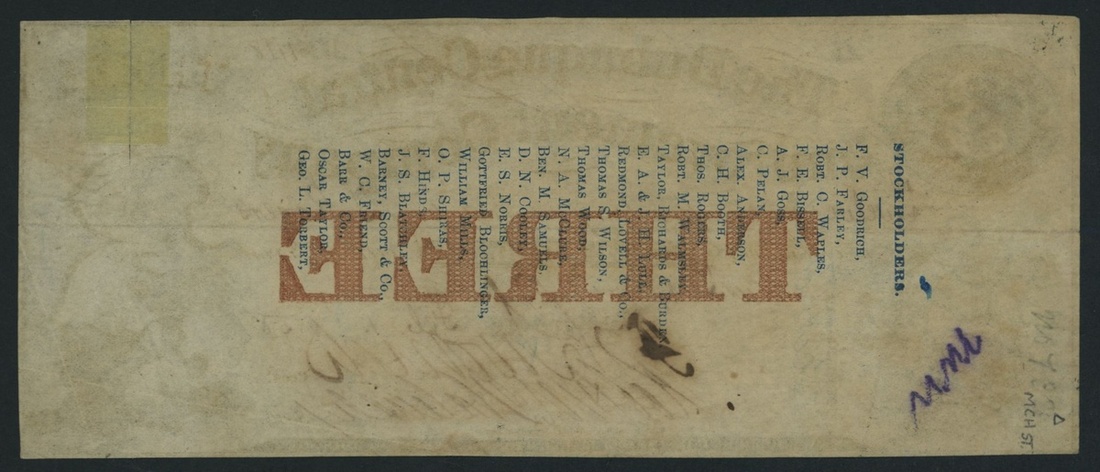 STOCKHOLDERS.
F. V. GOODRICH,
J. P. FARLEY,
ROBT. C. WAPLES,
F. E. BISSELL,
A. J. GOSS,
C. PELAN,
ALEX. ANDERSON,
C. H. BOOTH,
THOS. ROGERS,
ROBT. M. WALMSLEY
TAYLOR, RICHARDS & BURDEN
E. A. & J. H. LULL,
REDMOND, LOVELL & CO.,
THOMAS S. WILSON,
THOMAS WOOD,
N. A. MCCLURE,
BEN. M. SAMUELS,
D. N. COOLEY,
E. S. NORRIS,
GOTTFRIED BLOCHLINGER,
WILLIAM MILLS,
O. P. SHIRAS,
F. HINDS,
J. S. BLATCHLEY,
BARNEY, SCOTT & CO.,
W. C. FRIEND,
BARR & CO.,
OSCAR TAYLOR,
GEO. L. TORBERT,
THREE
MCH ST.